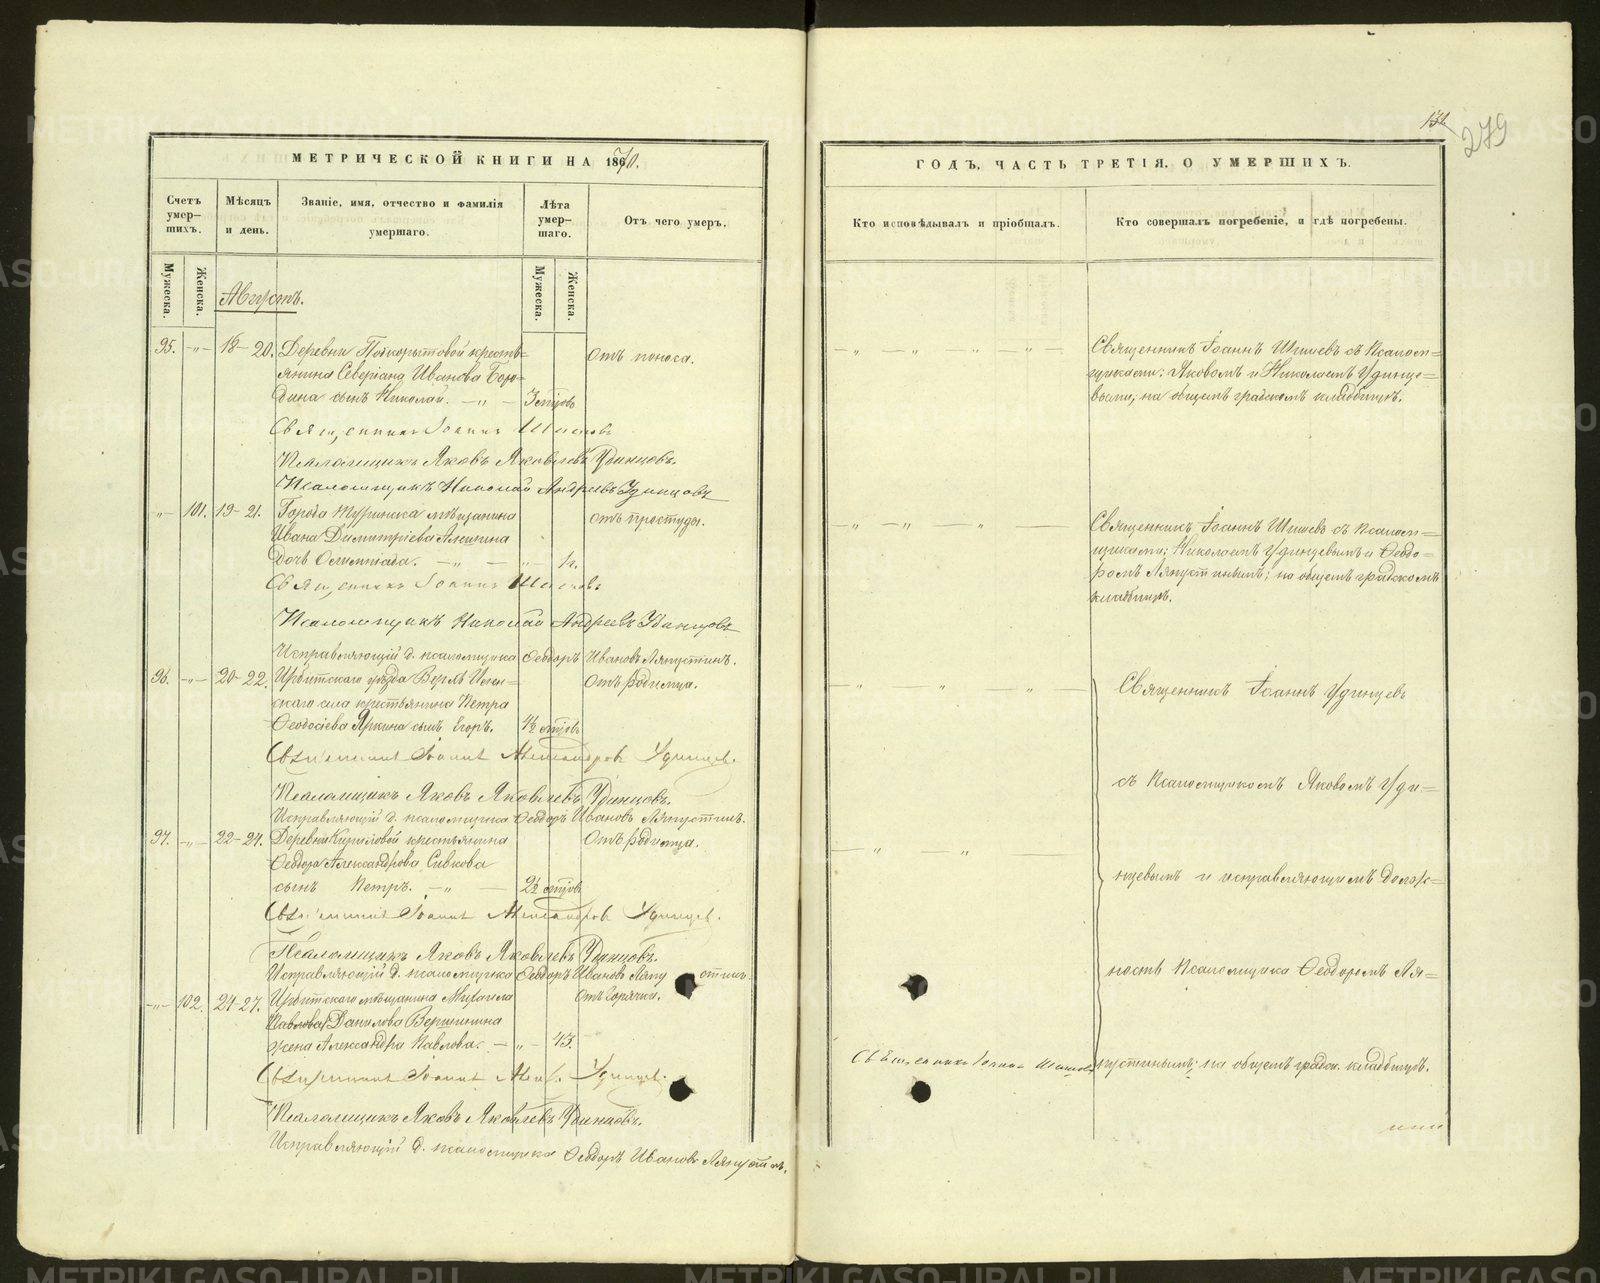 МЕТРИЧЕСКОЙ КНИГИ НА 1870.
Счетъ умер-
шихъ.
Мѣсяцъ
и день.
Званіе, имя, отчество и фамилія
умершаго.
Лѣта
умер-
шаго.
Отъ чего умеръ.
Мужеска.
Женска.
Мужеска.
Женска.
Августъ.
95. -„- 18-20. Деревни крестъ= отъ поноса.
янина Северіана Иванова Боро=
дина сынъ Николай. -„- 3 мѣсяцовъ
Священникъ Іоаннъ Шишевъ
Псаломщикъ Яковъ Яковлевъ Удинцовъ.
Псаломщикъ Николай Андреевъ Удинцовъ
-„- 101. 19-21. Города Туринска мѣщанина отъ простуды.
Ивана Димитріева
дочь Олимпіада. -„- - -„- 1 г.
Священникъ Іоаннъ Шишевъ
Псаломщикъ Николай Андреевъ Удинцовъ
Исправляющій д. псаломщика Ѳеодоръ Ивановъ Ляпустинъ.
96. -„- 20-22. Ирбитскаго уѣзда Отъ родимца.
скаго села крестьянина Петра
Ѳеодосіева Яркина сынъ Егоръ.
Священникъ Іоаннъ Александровъ Удинцевъ.
Псаломщикъ Яковъ Яковлевъ Удинцовъ.
Исправляющій д. псаломщика Ѳеодоръ Ивановъ Ляпустинъ.
97. -„- 22-24. Деревни Кириловой крестьянина Отъ родимца.
Ѳеодора Александрова Сивкова
сынъ Петръ. -„-
Священникъ Іоаннъ Александровъ Удинцевъ.
Псаломщикъ Яковъ Яковлевъ Удинцовъ.
Исправляющій д. псаломщика Ѳеодоръ Ивановъ Ляпустинъ.
-„- 102. 24-27. Ирбитскаго мѣщанина Михаила Отъ горячки.
Павлова Данилова Вершинина
жена Александра Павлова. -„- 43.
Священникъ Іоаннъ Алекс. Удинцевъ.
Псаломщикъ Яковъ Яковлевъ Удинцовъ.
Исправляющій д. псаломщика Ѳеодоръ Ивановъ Ляпустинъ.
279
ГОДЪ, ЧАСТЬ ТРЕТІЯ, О УМЕРШИХЪ.
Кто исповѣдывалъ и пріобщалъ.
Кто совершалъ погребеніе, и гдѣ погребены.
Священникъ Іоаннъ Шишевъ съ псалом=
щиками: Яковомъ и Николаемъ Удинце=
выми, на общемъ градскомъ кладбищѣ.
Священникъ Іоаннъ Шишевъ съ псалом=
щиками; Николаемъ Удинцевымъ и Ѳеодо=
ромъ Ляпустинымъ; на общемъ градскомъ
кладбищѣ.
Священникъ Іоаннъ Удинцевъ
съ псаломщикомъ Яковомъ Уди=
нцевымъ и исправляющимъ долж=
ность псаломщика Ѳеодоромъ Ля=
Священникъ Іоаннъ Шишевъ
пустинымъ; на общемъ градск. кладбищѣ.
METRIKI.GASO-URAL.RU